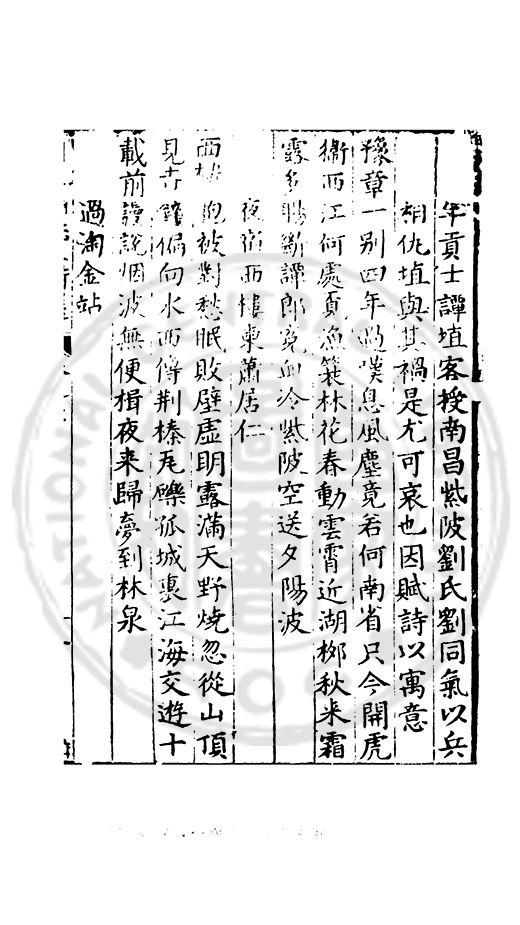 年貢士譚埴客授南昌紫陂劉氏劉同氣以兵
相仇埴與其禍是尤可哀也因賦詩以寓意
豫章一别四年過嘆息風塵竟若何南省只今開虎
衛西江何處覓漁簑林花春動雲霄近湖栁秋來霜
露多腸斷譚郎冤血冷紫陂空送夕陽波
夜宿西樓柬蕭居仁
西樓抱被對愁眠敗壁虛明露滿天野燒忽從山頂
見寺鐘偏向水西傳荆榛瓦礫孤城裏江海交遊十
載前謾說烟波無便楫夜来歸夣到林泉
過淘金站